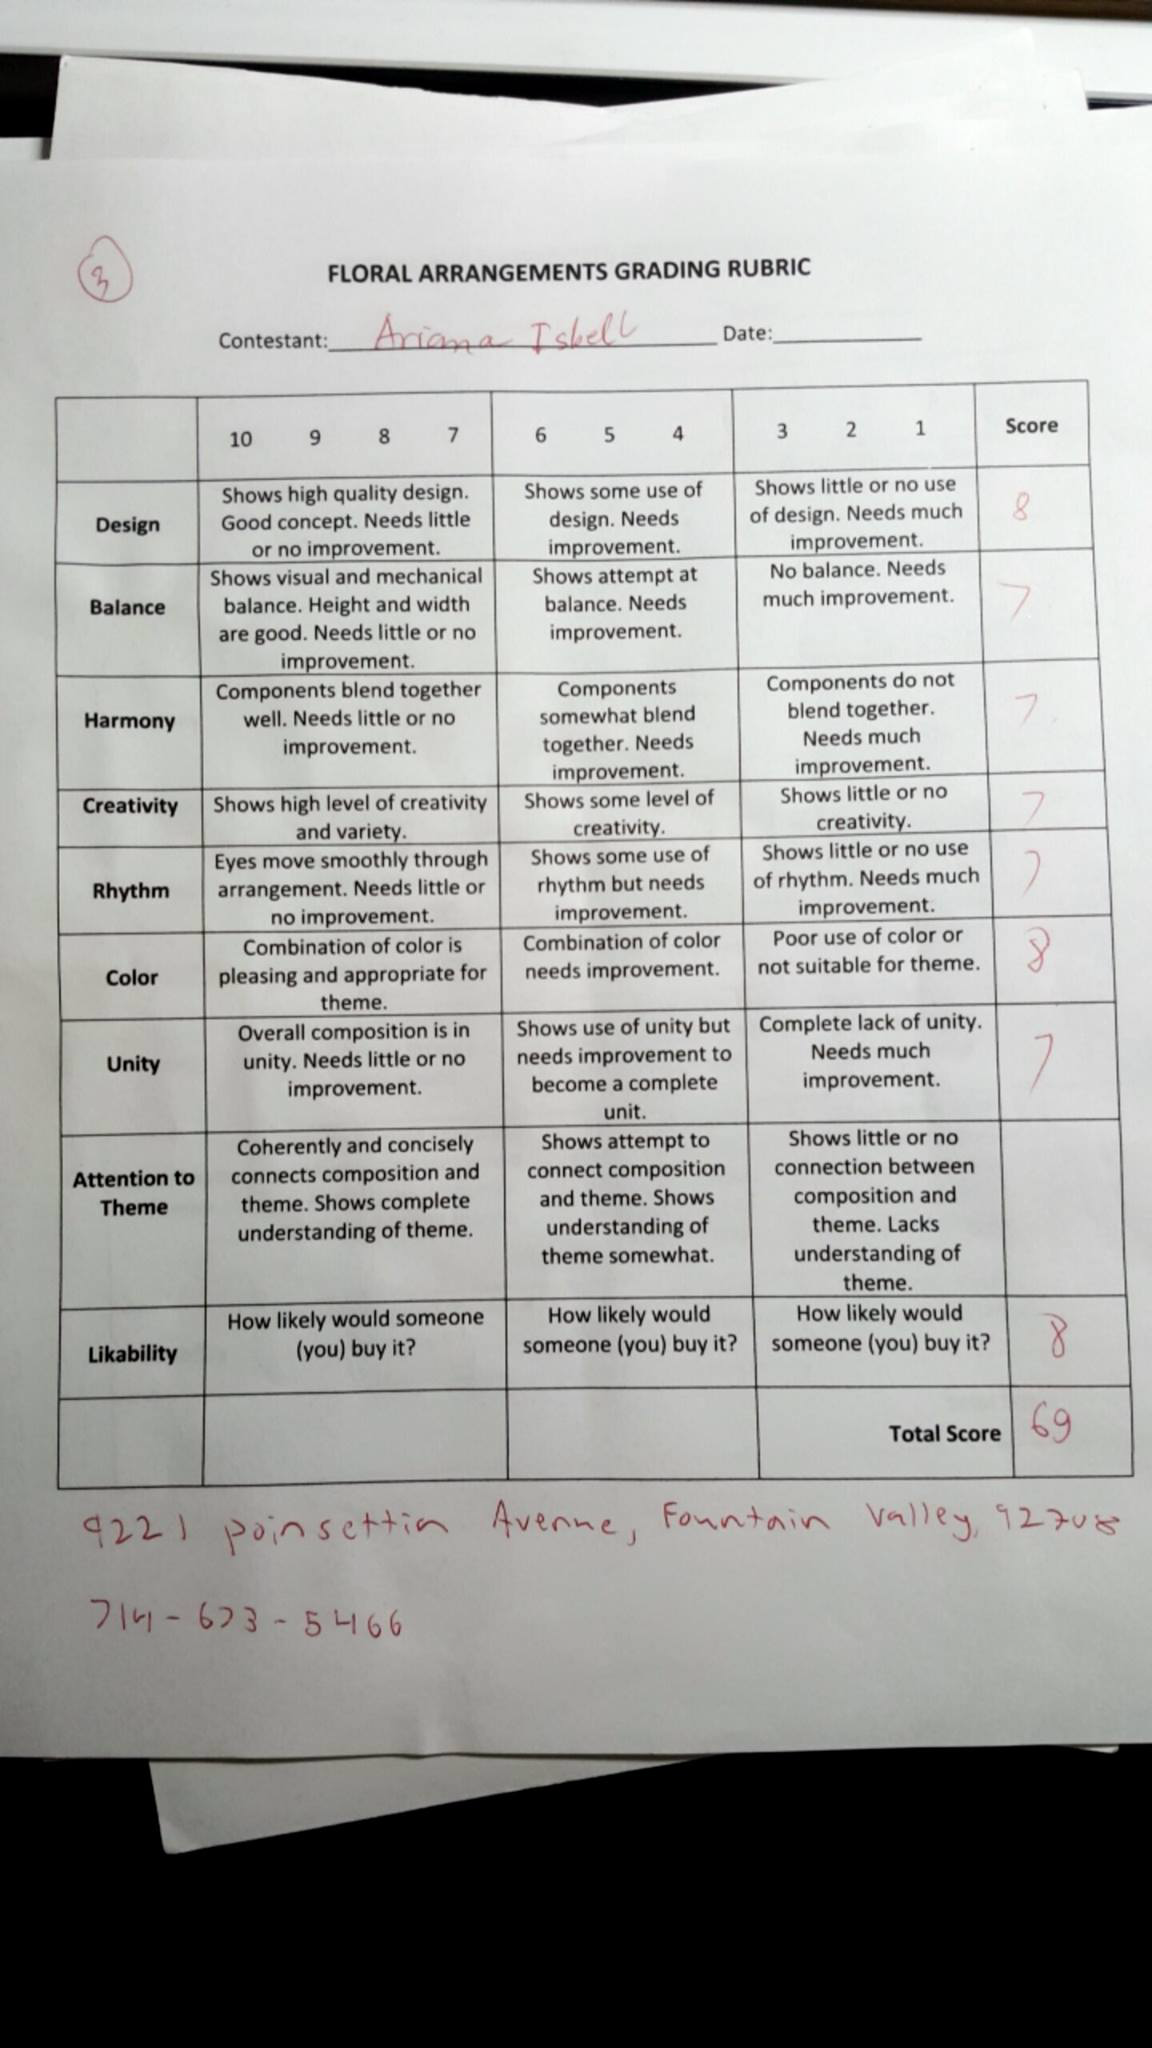 3
FLORAL ARRANGEMENTS GRADING RUBRIC
Contestant: Ariana Isbell Date:
10 9 8 7 6 5 4 3 2 1 Score
Design
Shows high quality design.
Good concept. Needs little
or no improvement.
Shows some use of
design. Needs
improvement.
Shows little or no use
of design. Needs much
improvement.
8
Balance
Shows visual and mechanical
balance. Height and width
are good. Needs little or no
improvement.
Shows attempt at
balance. Needs
improvement.
No balance. Needs
much improvement.
7
Harmony
Components blend together
well. Needs little or no
improvement.
Components
somewhat blend
together. Needs
improvement.
Components do not
blend together.
Needs much
improvement.
7
Creativity
Shows high level of creativity
and variety.
Shows some level of
creativity.
Shows little or no
creativity.
7
Rhythm
Eyes move smoothly through
arrangement. Needs little or
no improvement.
Shows some use of
rhythm but needs
improvement.
Shows little or no use
of rhythm. Needs much
improvement.
7
Color
Combination of color is
pleasing and appropriate for
theme.
Combination of color
needs improvement.
Poor use of color or
not suitable for theme.
8
Unity
Overall composition is in
unity. Needs little or no
improvement.
Shows use of unity but
needs improvement to
become a complete
unit.
Complete lack of unity.
Needs much
improvement.
7
Attention to
Theme
Coherently and concisely
connects composition and
theme. Shows complete
understanding of theme.
Shows attempt to
connect composition
and theme. Shows
understanding of
theme somewhat.
Shows little or no
connection between
composition and
theme. Lacks
understanding of
theme.
Likability
How likely would someone
(you) buy it?
How likely would
someone (you) buy it?
How likely would
someone (you) buy it?
8
Total Score 69
9221 poinsettia Avenue, Fountain Valley, 92708
714-673-5466